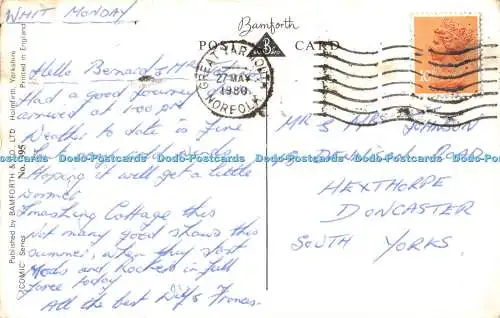 WHIT MONDAY
Bamforth
POST CARD
GREAT YARMOUTH
27 MAY
1980
NORFOLK
Hello Bernard & Mrs
Had a good journey
arrived at 1.00 pm
Weather to date is fine
Hoping it will get a little
warmer
Smashing Cottage this
Not many good shows this
summer, when they start
Mods and Rockers in full
force today
All the best Dilys Frances.
MR & MRS JOHNSON
ROAD
HEXTHORPE
DONCASTER
SOUTH YORKS.
"COMIC" Series No.
Published by BAMFORTH & CO. LTD Holmfirth, Yorkshire
Printed in England
Dodo-Postcards Dodo-Postcards Dodo-Postcards Dodo-Postcards Dodo-Postcards